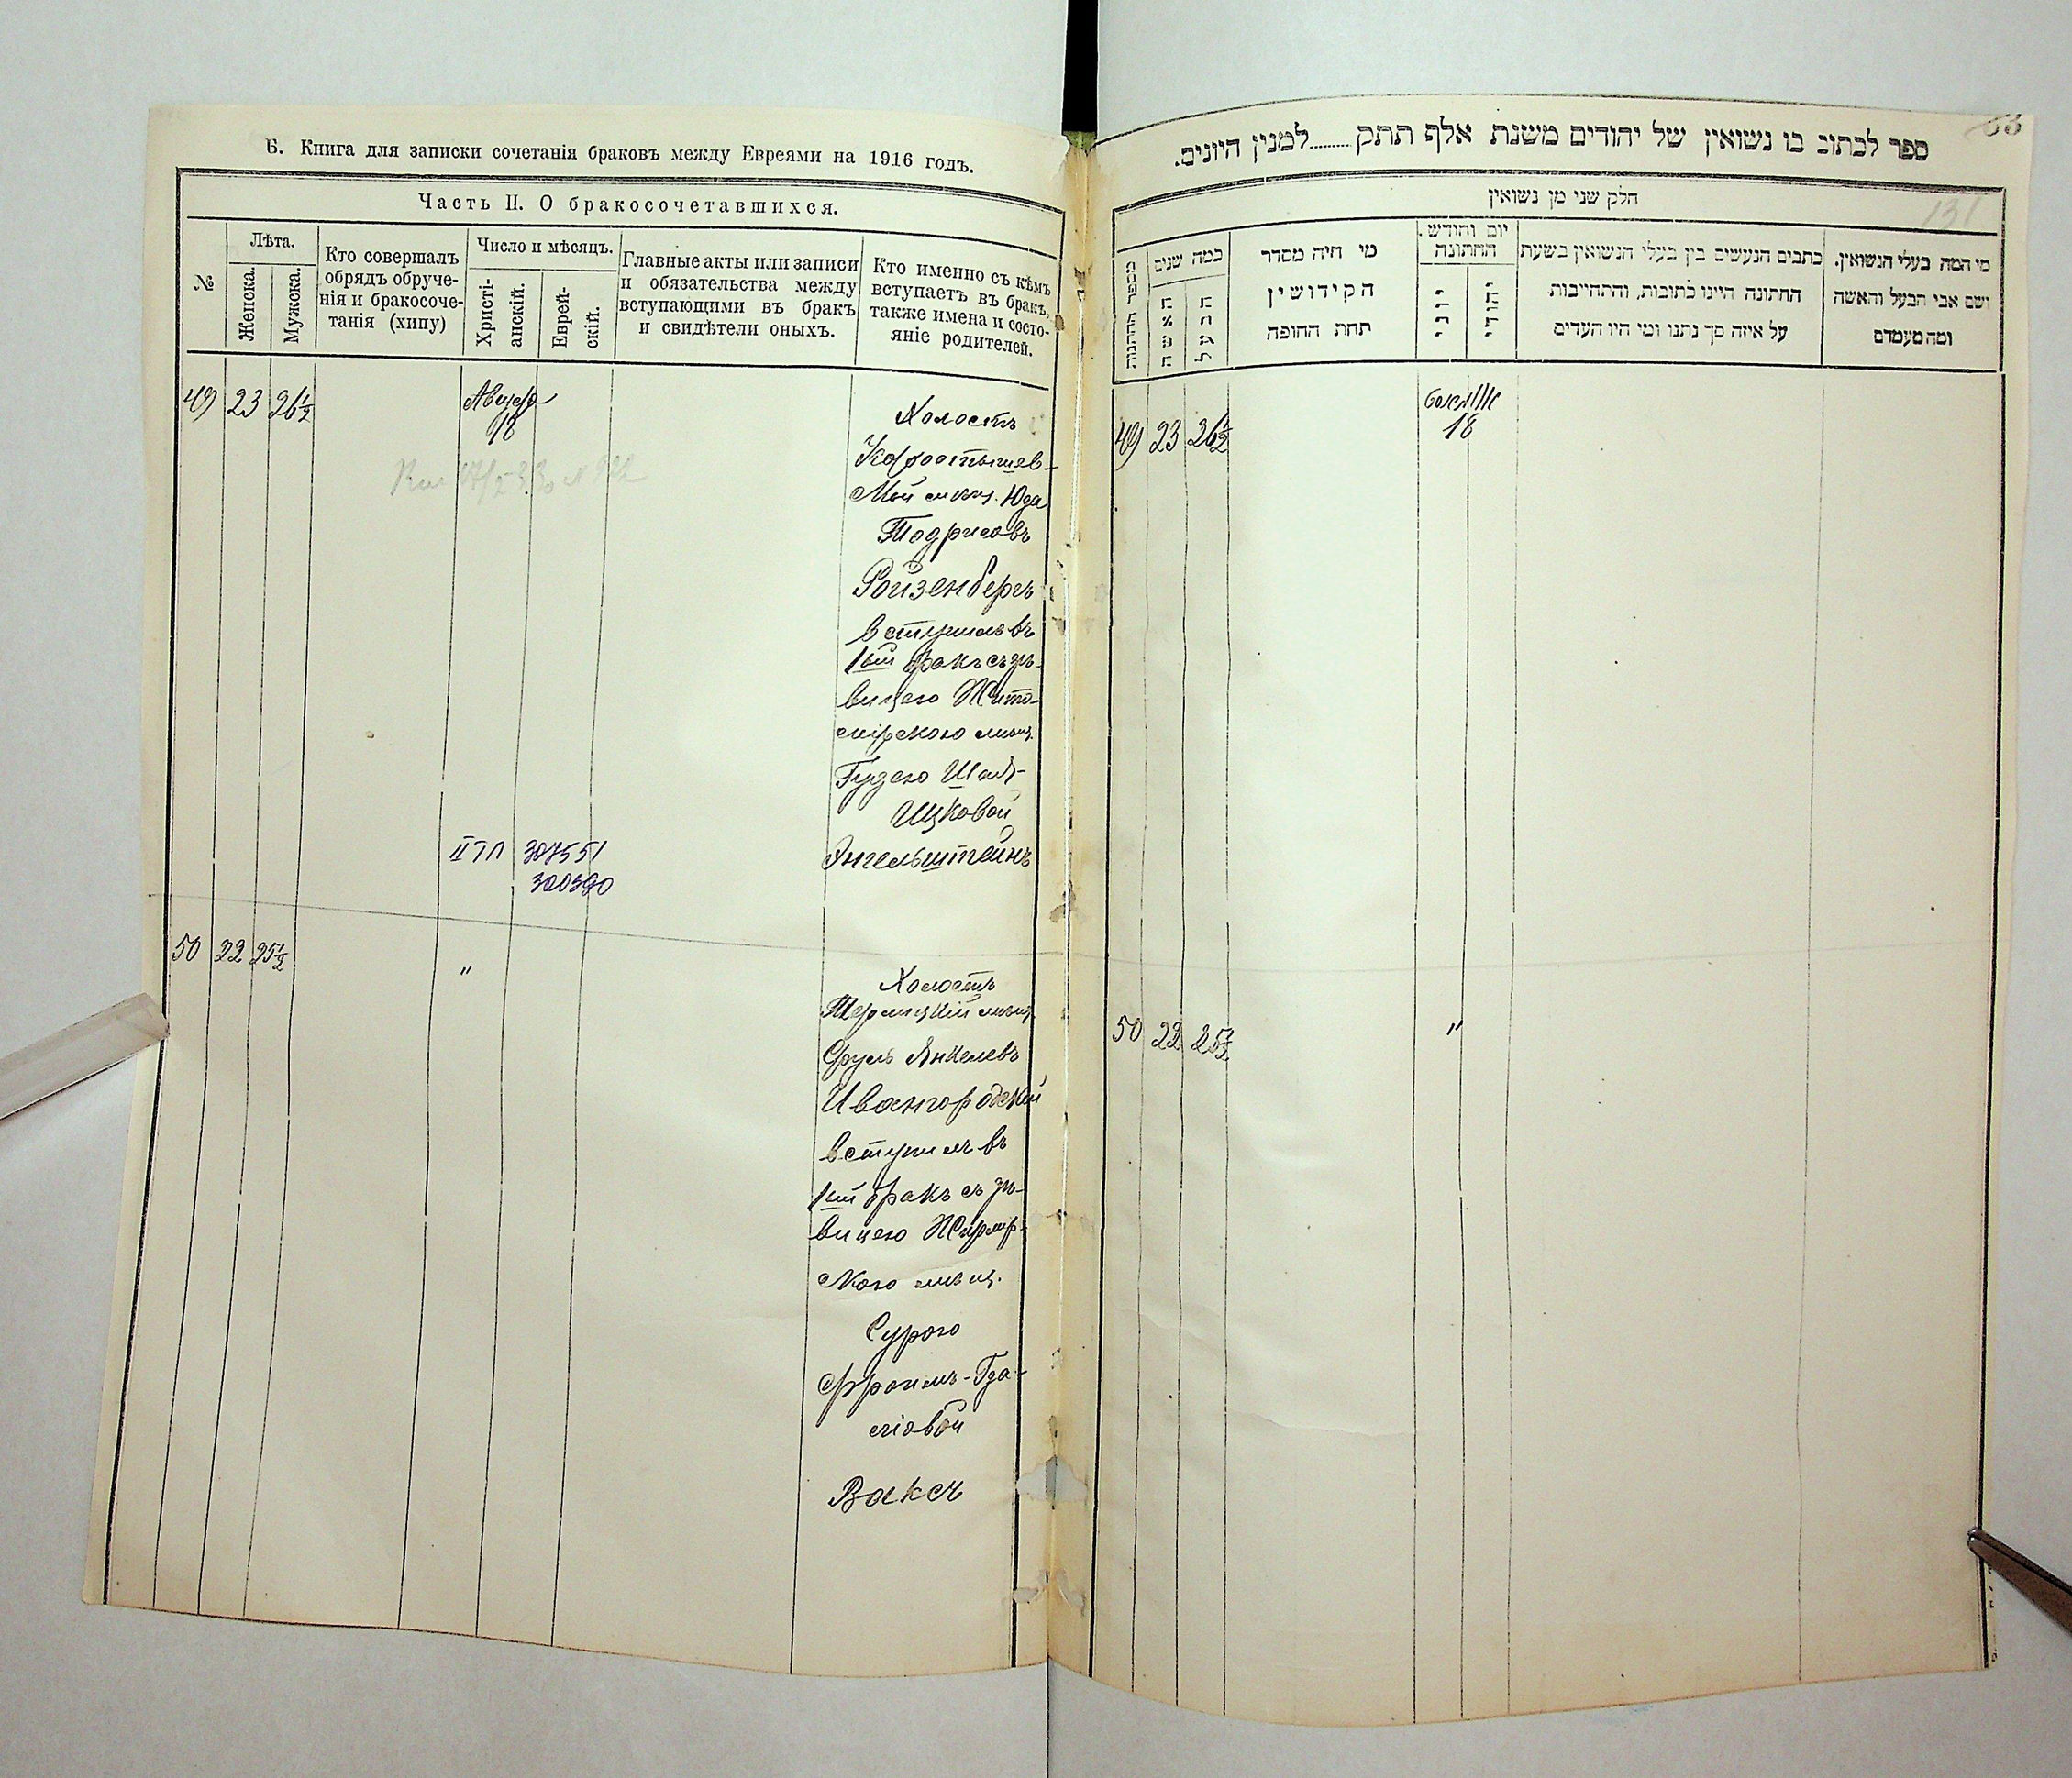 Б. Книга для записки сочетанія браковъ между Евреями на 1916 годъ.
Часть II. О бракосочетавшихся.
№
Лѣта.
Женска.
Мужска.
Кто совершалъ
обрядъ обруче-
нія и бракосоче-
танія (хипу)
Число и мѣсяцъ.
Христі-
анскій.
Еврей-
скій.
Главные акты или записи
и обязательства между
вступающими въ бракъ
и свидѣтели оныхъ.
Кто именно съ кѣмъ
вступаетъ въ бракъ,
также имена и состо-
яніе родителей.
49 23 26½
18
Холостъ
Коростышев-
мѣщ. Юда
Тодрисовъ
Ройзенбергъ
вступилъ въ
1ый бракъ съ дѣ-
вицею Жито-
мірскою мѣщ.
Ицковой
Энгельштейнъ
II ТП 307551
300390
50 22 25½
"
Холостъ
мѣщ.
Сруль Янкелевъ
Ивангородскій
вступилъ въ
1ый бракъ съ дѣ-
вицею
мѣщ.
Сурою
Фроимъ-Гда-
ліовой
Ваксъ
63
131
ספר לכתוב בו נשואין של יהודים משנת אלף תתק........למנין היונים.
חלק שני מן נשואין
מספר החתונות
כמה שנים
האשה
הבעל
מי היה מסדר
הקידושין
תחת החופה
יום וחודש.
החתונה
יוני
יהודי
כתבים הנעשים בין בעלי הנשואין בשעת
החתונה היינו כתובות, והתחייבות
על איזה סך נתנו ומי היו העדים
מי המה בעלי הנשואין.
ושם אבי הבעל והאשה
ומה מעמדם
49 23 26½
18
50 22 25½
"